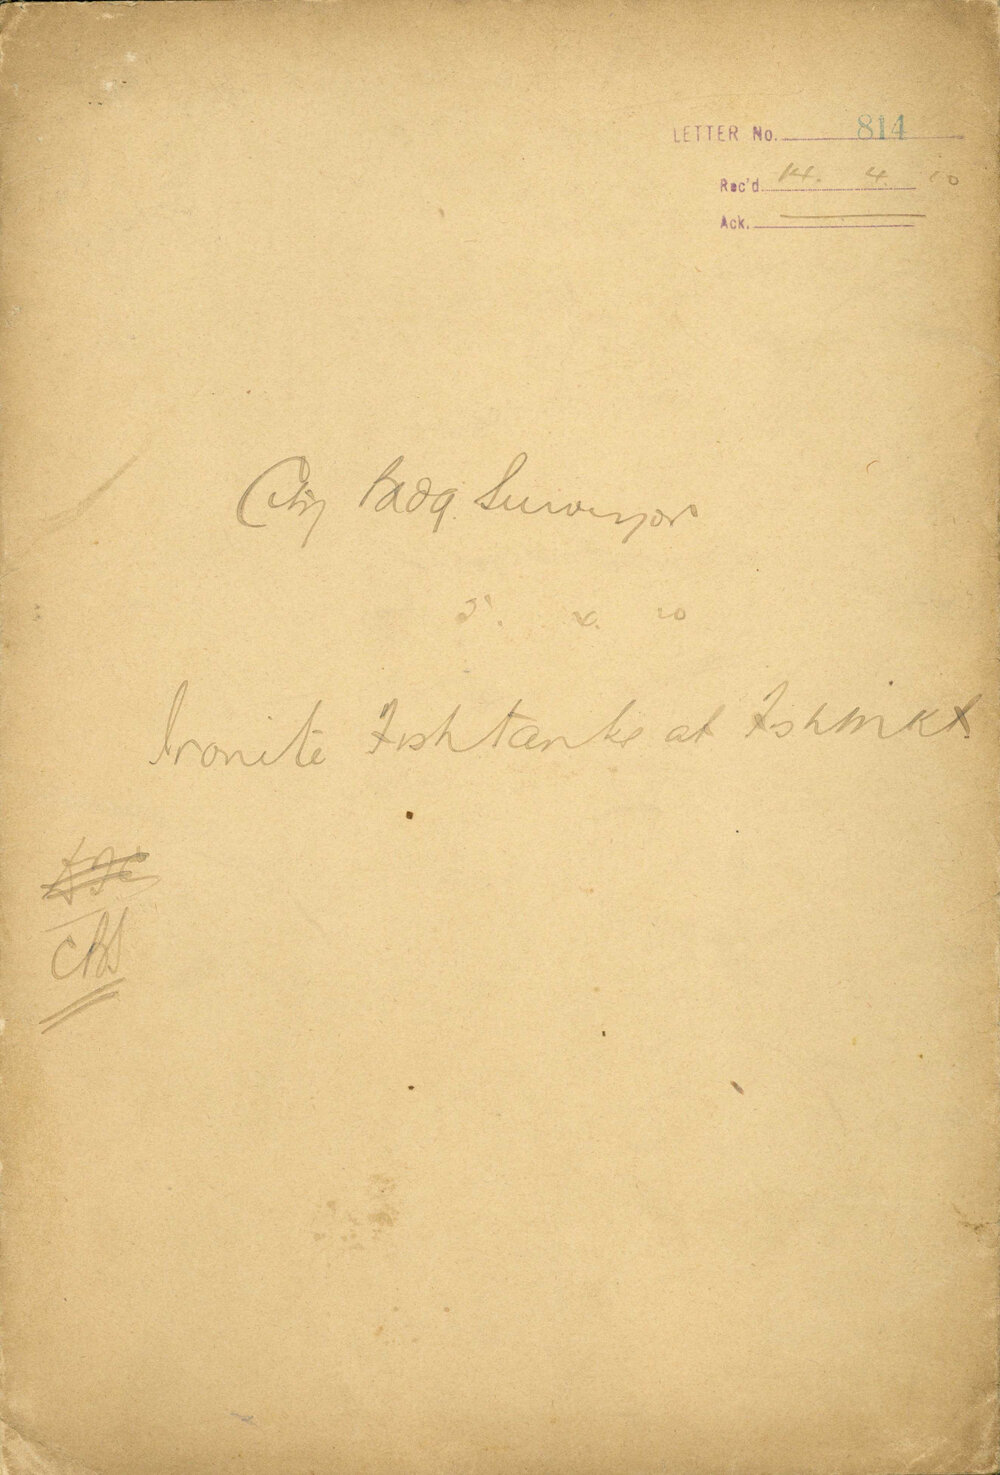 LETTER No. 814
Rec'd 14. 4. 10
Ack.
City Bldg Surveyor
4. 10
Ironite Fishtanks at Fshmkt
CBS